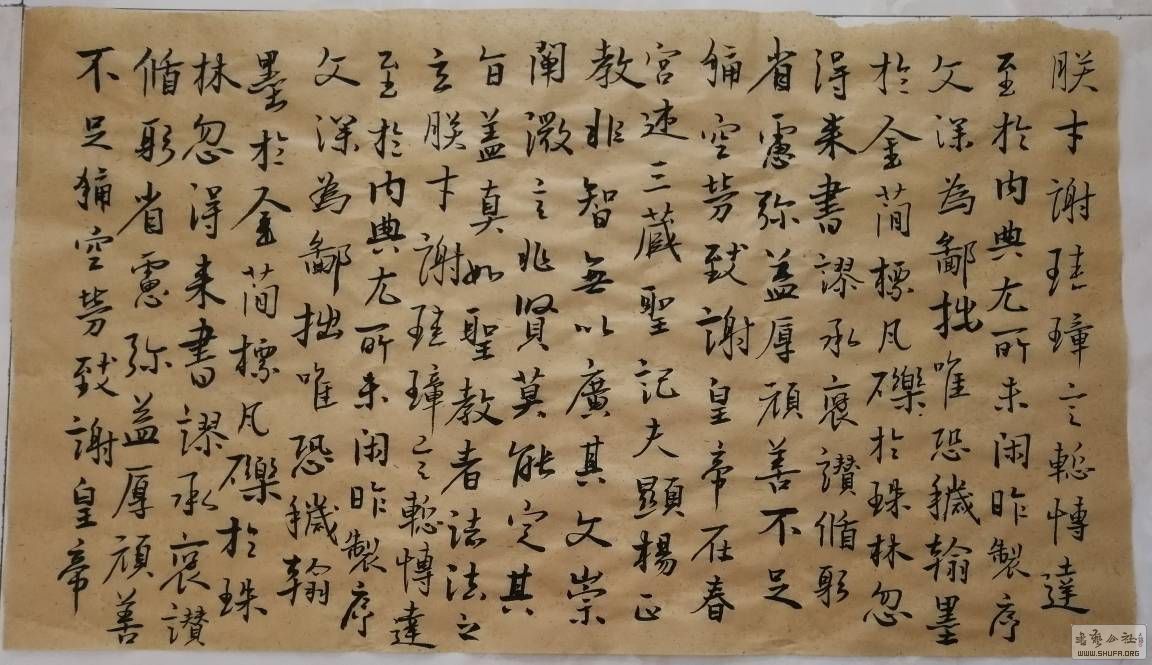 朕才謝珪璋言慙博達
至於内典尤所未閑昨製序
文深為鄙拙唯恐穢翰墨
於金簡標凡礫於珠林忽
得来書謬承褒讃循躬
省慮弥益厚顔善不足
稱空勞致謝皇帝在春
宮述三藏聖記夫顯揚正
教非智無以廣其文崇
闡微言非賢莫能定其
旨盖真如聖教者諸法之
玄朕才謝珪璋言慙博達
至於内典尤所未閑昨製序
文深為鄙拙唯恐穢翰
墨於金簡標凡礫於珠
林忽得来書謬承褒讃
循躬省慮弥益厚顔善
不足稱空勞致謝皇帝
書藝公社
WWW.SHUFA.ORG